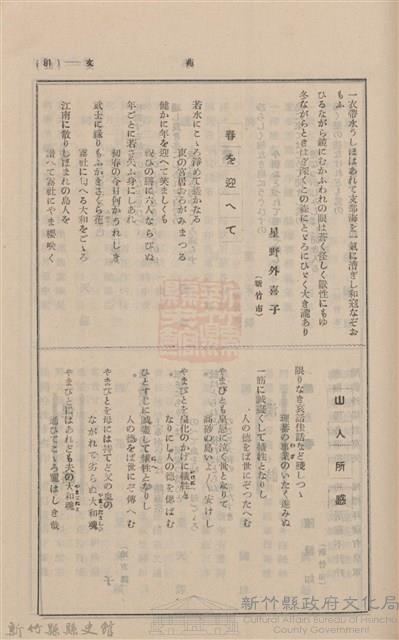 (81)——文
苑
一衣帶水うしほはあれて支那海を一氣に渡ぎし和寇なぞお
もふ
ひるながら鏡にむかふわれの眼は蒼く怪しく獸性にもゆ
冬ながらときはぎ深くこの森にとどろにひゞく大き瀧あり
春を迎へて
星野外喜子
(新竹市)
若水にこゝろ淨めて遙かなる
東の宮居をろがみまつる
健かに年を迎へて笑ましくも
祝ひの膳に六人ならびぬ
年ごとに若さ失ふ身にしあれ
初春の今日何かうれしき
武士に縁りもふかきさくら花
霧社に匂へる大和をごゝろ
江南に散りしほまれの島人を
讃へて霧社にやま櫻咲く
山人所感
限りなき哀話佳話など殘しつゝ
理蕃の事業のいたく進みぬ
一筋に誠盡くして犧牲となりし
人の德をば世にぞつたへむ
やまびとも皇恩に泣く世と なりて
高砂の島いよゝ安けし
やまびとを皇化のかげに犧牲と
なりにし人の德を偲ばむ
ひとすじに誠盡して犧牲となりし
人の德をば世に永傳へむ
やまびとを母には持てど父の血の
ながれて劣らぬ大和魂
やまびとにはあれども夫の大和魂
通ひてこゝろ靈はしき哉
新竹縣縣史館
新竹縣政府文化局
Cultural Affairs Bureau of Hsinchu
County Government